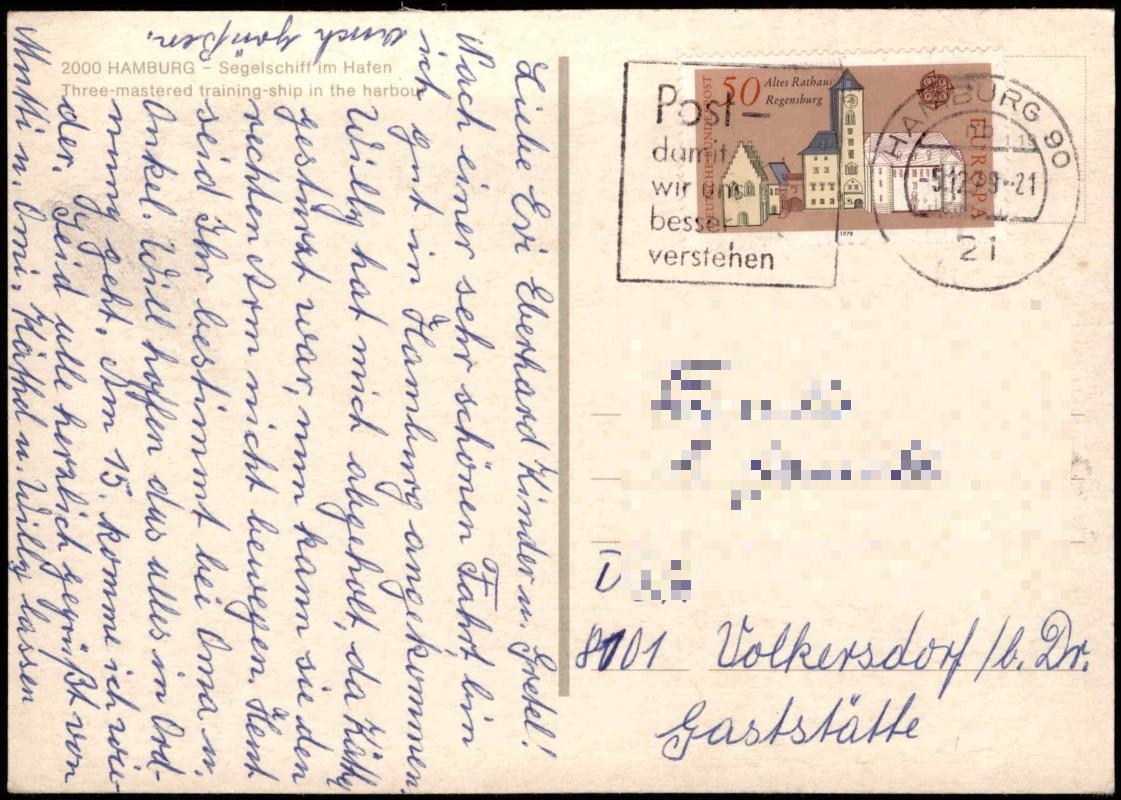 2000 HAMBURG – Segelschiff im Hafen
Three-masted training-ship in the harbour
Liebe Evi Eberhard Kinder u. Gretel!
Nach einer sehr schönen Fahrt, bin
ich gut in Hamburg angekommen.
Willy hat mich abgeholt, da Käthy
gestürzt war, nun kann sie den
rechten Arm nicht bewegen. Heut
seid Ihr bestimmt bei Oma u.
Onkel. Will hoffen das alles in Ord-
nung geht. Am 15. komme ich wie-
der. Seid alle herzlich gegrüßt von
Mutti u. Omi, Käthd u. Willy lassen
auch grüßen.
Post –
damit
wir uns
besser
verstehen
50
Altes Rathaus
Regensburg
DEUTSCHE BUNDESPOST
EUROPA
1978
HAMBURG 90
21
8101 Volkersdorf /b. Dr.
Gaststätte